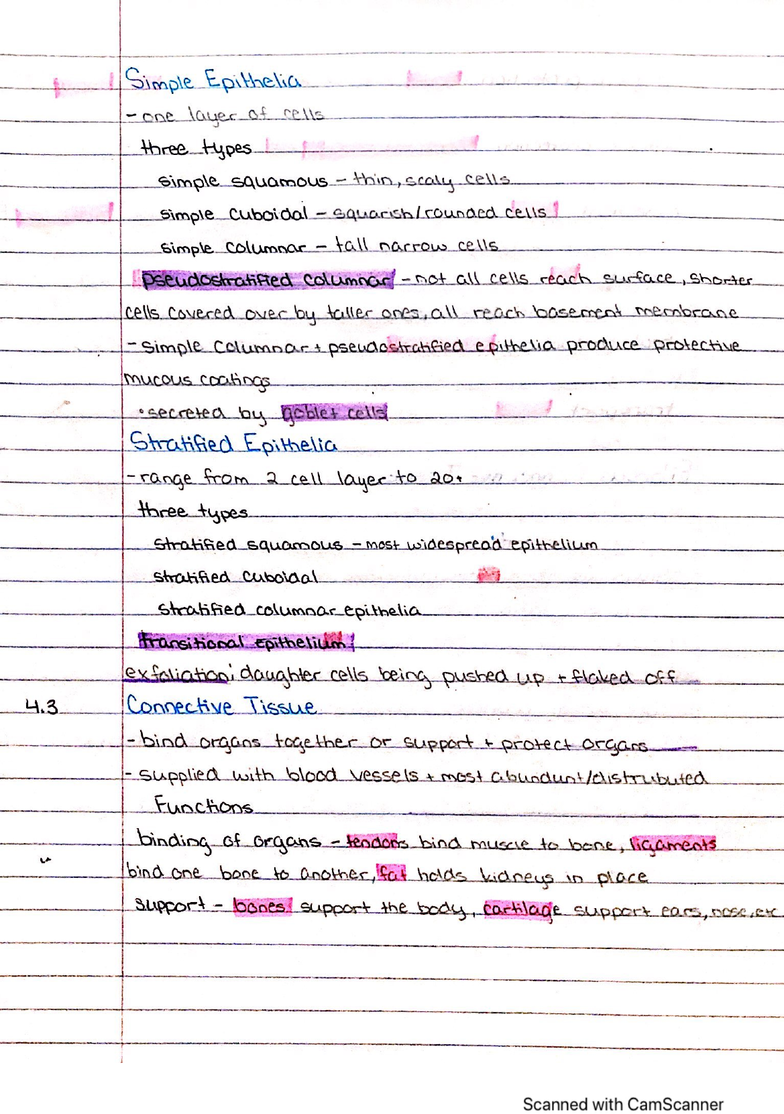 Simple Epithelia
- one layer of cells
three types
simple squamous - thin, scaly cells
simple cuboidal - squarish/rounded cells
simple columnar - tall narrow cells
pseudostratified columnar - not all cells reach surface, shorter
cells covered over by taller ones, all reach basement membrane
- simple columnar + pseudostratified epithelia produce protective
mucous coatings
• secreted by goblet cells
Stratified Epithelia
- range from 2 cell layer to 20+
three types
stratified squamous - most widespread epithelium
stratified cuboidal
stratified columnar epithelia
transitional epithelium
exfoliation: daughter cells being pushed up + flaked off
4.3 Connective Tissue
- bind organs together or support + protect organs
- supplied with blood vessels + most abundunt/distributed
Functions
binding of organs - tendons bind muscle to bone, ligaments
bind one bone to another, fat holds kidneys in place
support - bones support the body, cartilage support ears, nose, etc
Scanned with CamScanner